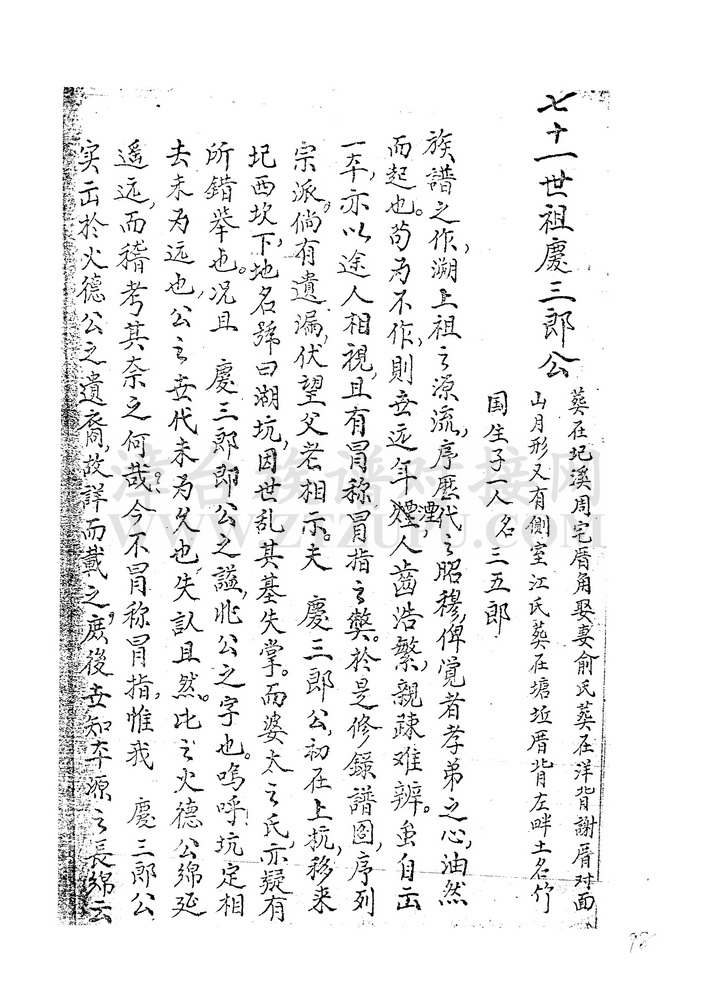 七十一世祖慶三郎公
葵在圯溪周宅厝角娶妻俞氏葵在洋背謝厝对面
山月形又有側室江氏葵在塘坵厝背左畔土名竹
国生子一人名三五郎
族譜之作,溯上祖之源流,序歷代之昭穆,俾覚者孝弟之心,油然
而起也。苟为不作,則世远年煙,人齒浩繁,親疎难辨。虽自出
一本,亦以途人相視,且有冒称冒指之獘。於是修錄譜图,序列
宗派。倘有遺漏,伏望父老相示。夫 慶三郎公,初在上杭,移来
圯西坎下,地名號曰湖坑,因世乱其基失掌。而婆太之氏,亦疑有
所錯举也。况且 慶三郎郎公之謚,非公之字也。嗚呼,坑定相
去未为远也,公之世代未为久也,失訞且然。比之火德公綿延
遥远,而稽考其奈之何哉?今不冒称冒指,惟我 慶三郎公
实出於火德公之遺裔,故詳而載之,庶後世知本源之長綿云
98
港台族谱对接网
WWW.ZFZUPU.COM